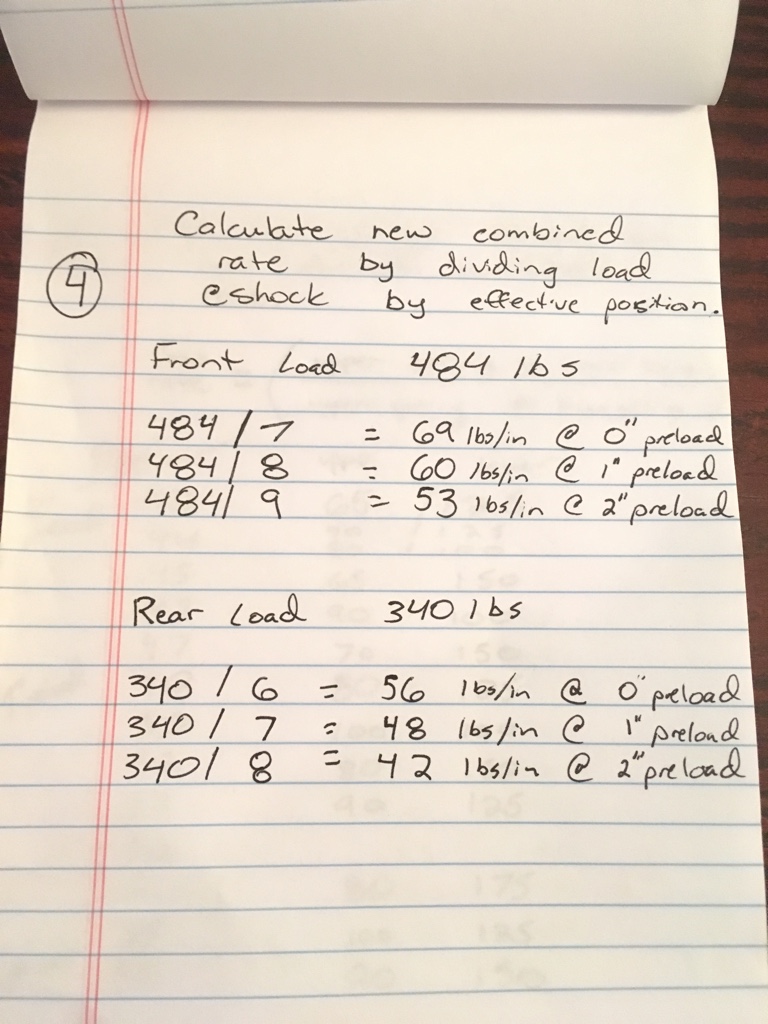 Calculate new combined
④ rate by dividing load
@shock by effective position.
Front Load 484 lbs
484 / 7 = 69 lbs/in @ 0" preload
484 / 8 = 60 lbs/in @ 1" preload
484 / 9 = 53 lbs/in @ 2" preload
Rear Load 340 lbs
340 / 6 = 56 lbs/in @ 0" preload
340 / 7 = 48 lbs/in @ 1" preload
340 / 8 = 42 lbs/in @ 2" preload